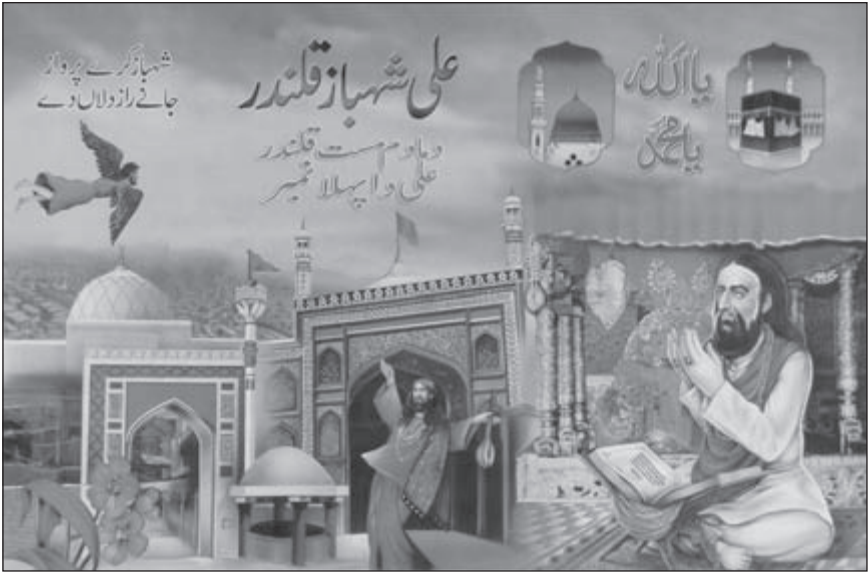 یا اللہ
یا محمد
علی شہباز قلندر
دمادم مست قلندر
علی دا پہلا نمبر
شہباز کرے پرواز
جانے راز دلاں دے